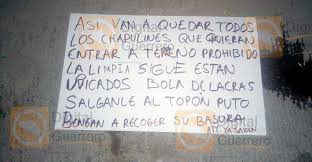 ASI VAN A QUEDAR TODOS
LOS CHAPULINES QUE QUIERAN
ENTRAR A TERENO PROHIBIDO
LA LIMPIA SIGUE ESTAN
UVICADOS BOLA DE LACRAS
SALGANLE AL TOPON PUTO
BENGAN A RECOGER SU BASURA
ATT. YA SABEN
Digital
Guerrero
Digital
Guerrero